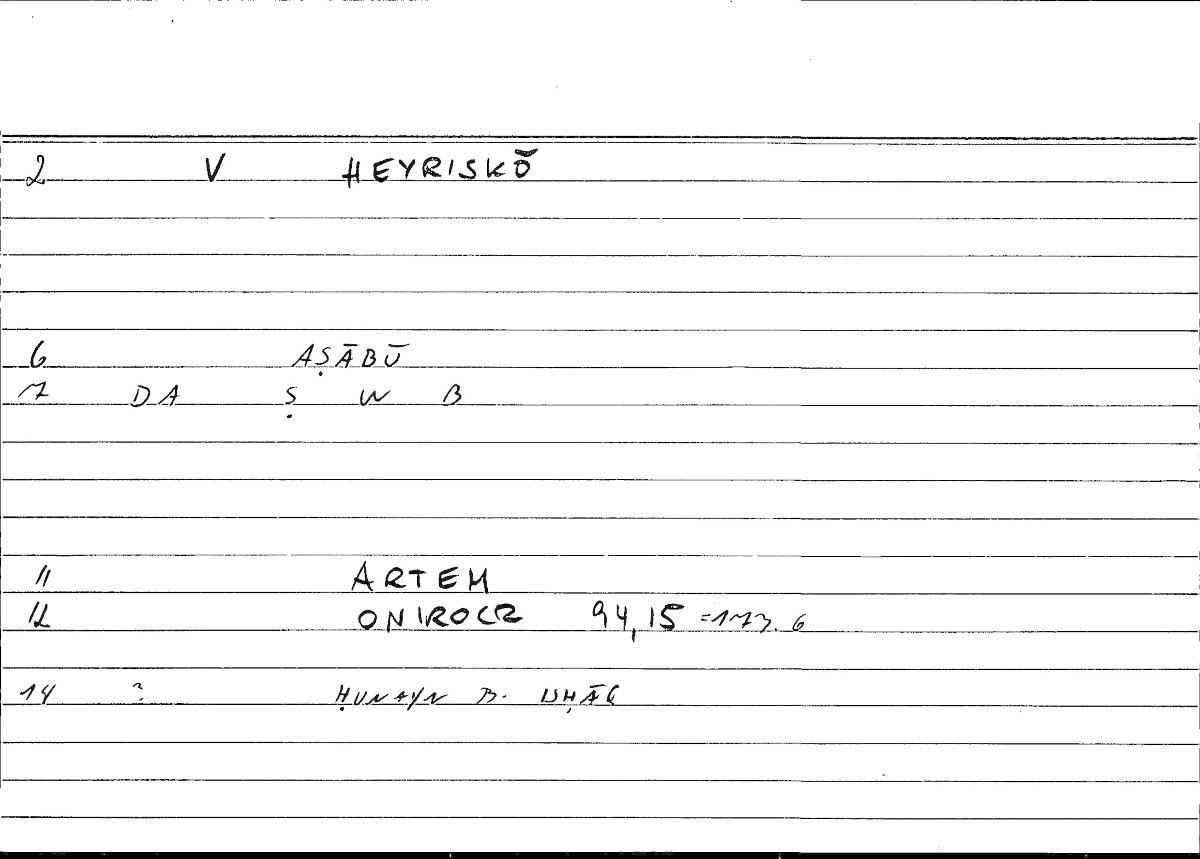 2 V HEYRISKŌ
6 AṢĀBŪ
7 DA Ṣ W B
11 ARTEM
12 ONIROCR 94,15 =173.6
14 ? ḤUNAYN B. ISḤĀQ